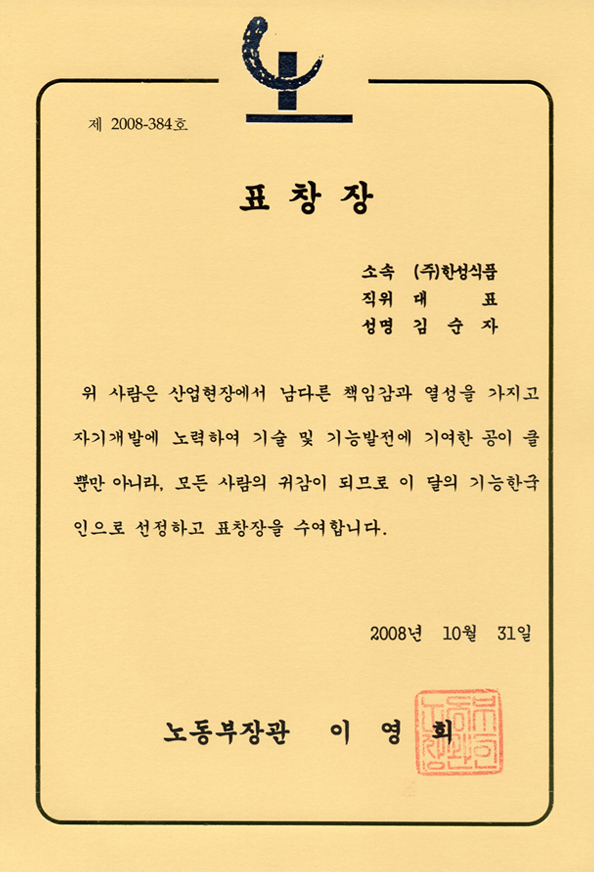 제 2008-384호
표 창 장
소속 (주)한성식품
직위 대 표
성명 김 순 자
위 사람은 산업현장에서 남다른 책임감과 열성을 가지고
자기개발에 노력하여 기술 및 기능발전에 기여한 공이 클
뿐만 아니라, 모든 사람의 귀감이 되므로 이 달의 기능한국
인으로 선정하고 표창장을 수여합니다.
2008년 10월 31일
노동부장관 이 영 희
노동부
장관인